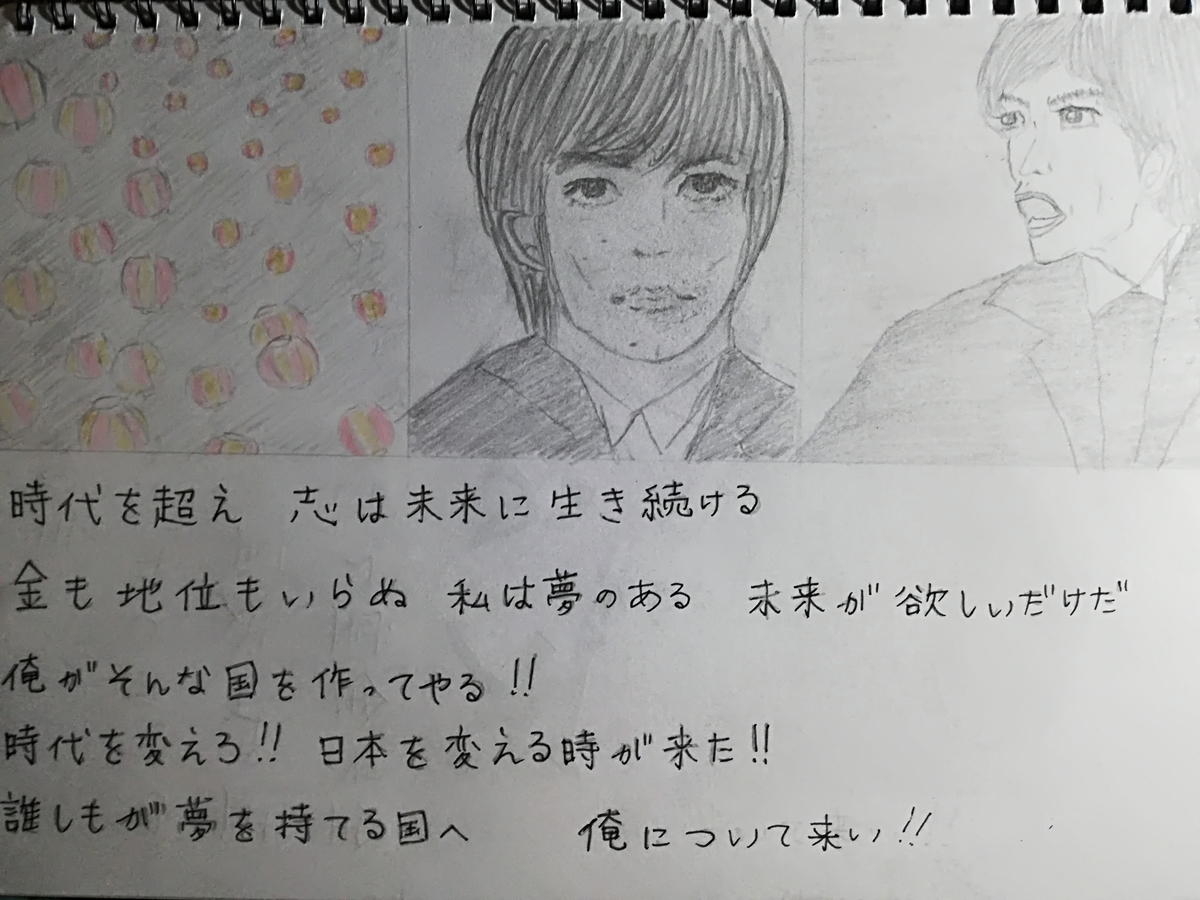 時代を超え 志は未来に生き続ける
金も地位もいらぬ 私は夢のある 未来が欲しいだけだ
俺がそんな国を作ってやる!!
時代を変えろ!! 日本を変える時が来た!!
誰しもが夢を持てる国へ 俺について来い!!